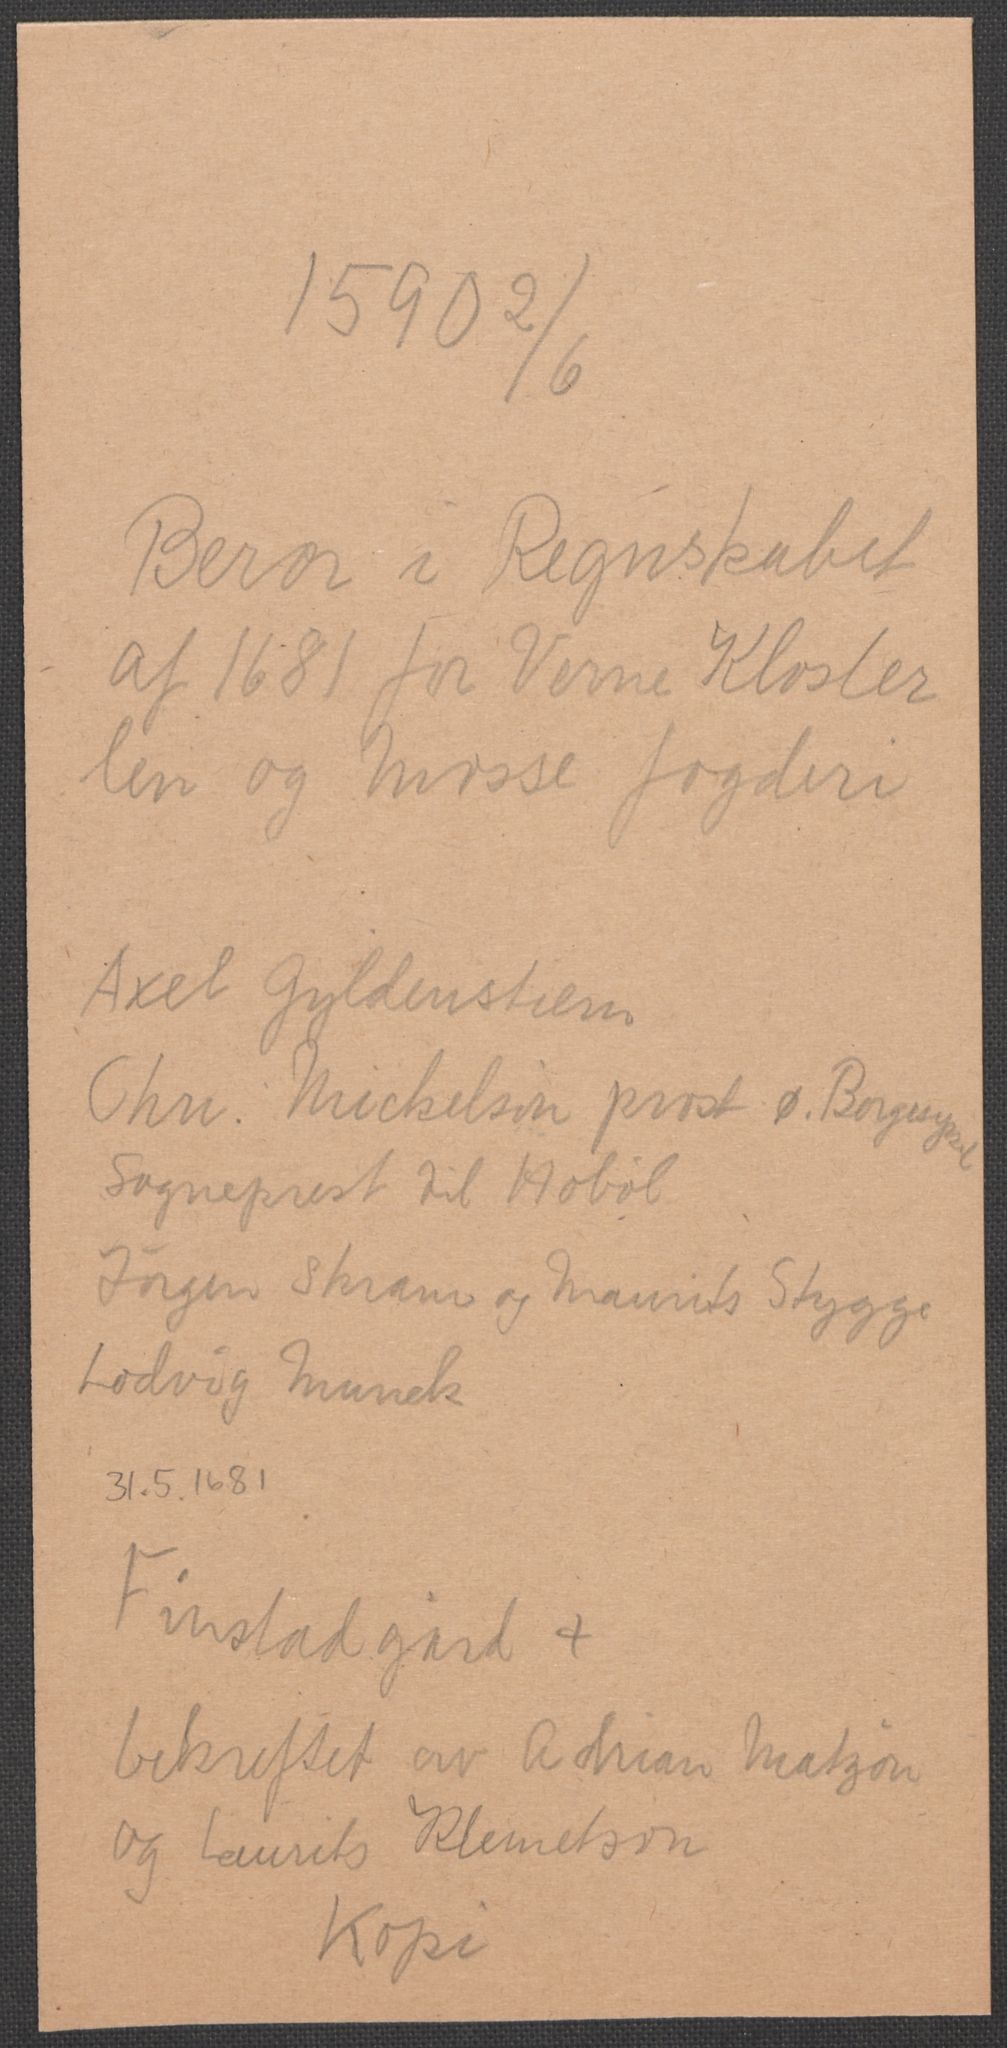 1590 2/6
Beror i Regnskabet
af 1681 for Verne Kloster
len og Mosse fogderi
Axel Gyldenstiern
Chr. Mickelsön prost ø. Borgesyssel
Sogneprest til Hoböl
Jörgen Skram og Maurits Stygge
Lodvig Munck
31.5.1681
Finstad gård +
bekreftet av Adrian Matzön
og Laurits Klemetson
Kopi